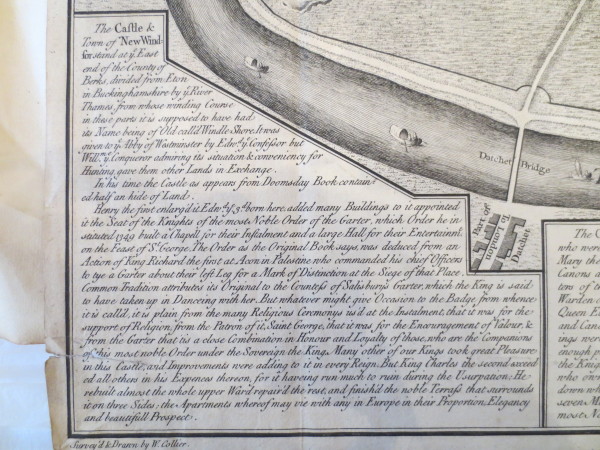 The Castle &
Town of New Wind=
sor stand at yͤ. East
end of the County of
Berks, divided from Eton
in Buckinghamshire by yͤ. River
Thames, from whose winding Course
in these parts it is supposed to have had
its Name being of Old call'd Windle Shore. It was
given to yͤ. Abby of Westminster by Edwᵈ. yͤ. Confessor but
Willᵐ. yͤ. Conqueror admiring its situation & conveniency for
Hunting gave them other Lands in Exchange.
In his time the Castle as appears from Doomsday Book contain=
ed half an hide of Land.
Henry the first enlarg'd it. Edwᵈ. yͤ. 3ᵈ. born here, added many Buildings to it appointed
it the Seat of the Knights of the most Noble Order of the Garter, which Order he in=
stituted 1349 built a Chapell for their Instalment and a large Hall for their Entertainmt.
on the Feast of Sᵗ. George. The Order as the Original Book says, was deduced from an
Action of King Richard the first at Acon in Palestine who commanded his chief Officers
to tye a Garter about their left Leg for a Mark of Distinction at the Siege of that Place.
Common Tradition attributes its Original to the Countess of Salisbury's Garter, which the King is said
to have taken up in Danceing with her. But whatever might give Occasion to the Badge from whence
it is call'd, it is plain from the many Religious Ceremonys us'd at the Instalment, that it was for the
support of Religion, from the Patron of it, Saint George, that it was for the Encouragement of Valour, &
from the Garter that tis a close Combination in Honour and Loyalty of those, who are the Companions
of this most noble Order under the Sovereign the King. Many other of our Kings took great Pleasure
in this Castle, and Improvements were adding to it in every Reign. But King Charles the second exceed
ed all others in his Expences thereon, for it haveing run much to ruin during the Usurpation: He
rebuilt almost the whole upper Ward repair'd the rest, and finish'd the noble Terrass that surrounds
it on three Sides; the Apartments whereof may vie with any in Europe in their Proportion, Elegancy
and beautifull Prospect.
Survey'd & Drawn by W. Collier.
Datchet Bridge
Part of
Datchet
to London
The C
who were
Mary th
Canons a
ters of t
Warden o
Queen E
and Cano
ings were
enough
the King
who on
drew wh
seven M
most No